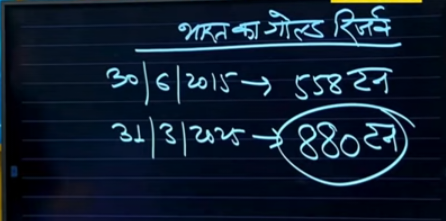 भारत का गोल्ड रिजर्व
30|6|2015 → 558 टन
31|3|2025 → 880 टन